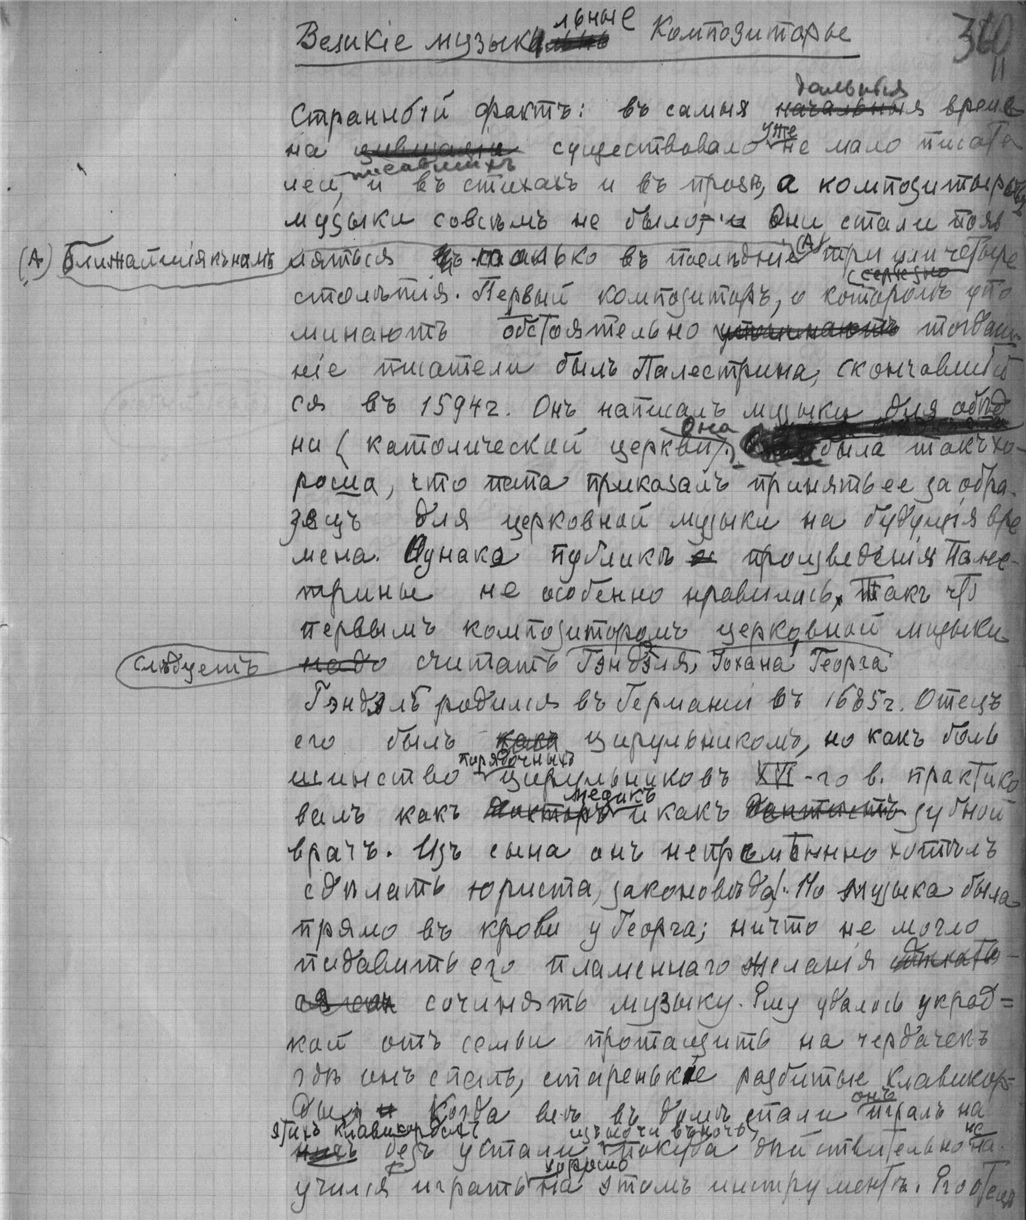 360
11
Великіе музыкальные Композиторы
Странный фактъ: въ самыя дальныя време
на существовало уже не мало писате
лей, писавшихъ и въ стихахъ и въ прозѣ, а композиторовъ
музыки совсѣмъ не было. Они стали появ
(А) ближайшія къ намъ
ляться только въ послѣдніе (А) три или четыре
столѣтія. Первый композиторъ, о которомъ упо
минаютъ обстоятельно тогдаш
ніе писатели былъ Палестрина, скончавшій
ся въ 1594 г. Онъ написалъ музыку для обѣд
ни (католической церкви). Она была такъ хо-
роша, что папа приказалъ принять ее за обра-
зецъ для церковной музыки на будущія вре
мена. Однако публикѣ произведенія Пале-
трины не особенно нравились, такъ что
первымъ композиторомъ церковной музыки
слѣдуетъ надо считать Гэндэля, Іохана Георга
Гэндэль родился въ Германіи въ 1685 г. Отецъ
его былъ цирульникомъ, но какъ боль
шинство порядочныхъ цирульниковъ XVI-го в. практико
валъ какъ медикъ и какъ дантистъ зубной
врачъ. Изъ сына онъ непремѣнно хотѣлъ
сдѣлать юриста, законовѣда. Но музыка была
прямо въ крови у Георга; ничто не могло
подавить его пламеннаго желанія
сочинять музыку. Ему удалось украд=
кой отъ семьи протащить на чердачекъ
гдѣ онъ спалъ, старенькіе разбитые клавикор-
ды. Когда всѣ въ домѣ спали онъ игралъ на
этихъ клавикордахъ безъ устали изъ ночи въ ночь, покуда дѣйствительно не на
учился играть хорошо на этомъ инструментѣ. Его отецъ